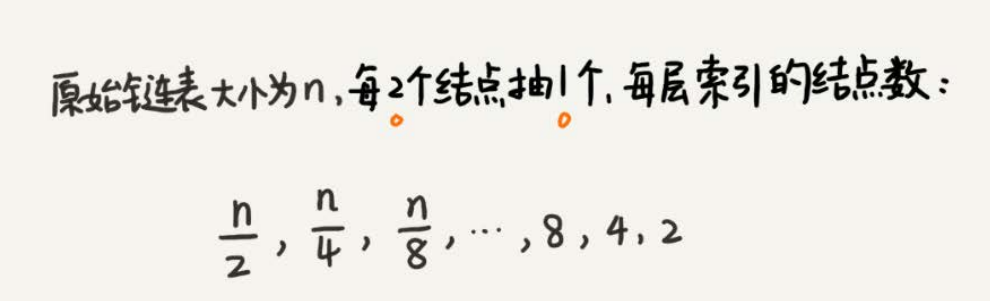 原始链表大小为n,每2个结点抽1个,每层索引的结点数:
n/2, n/4, n/8, ⋯, 8, 4, 2